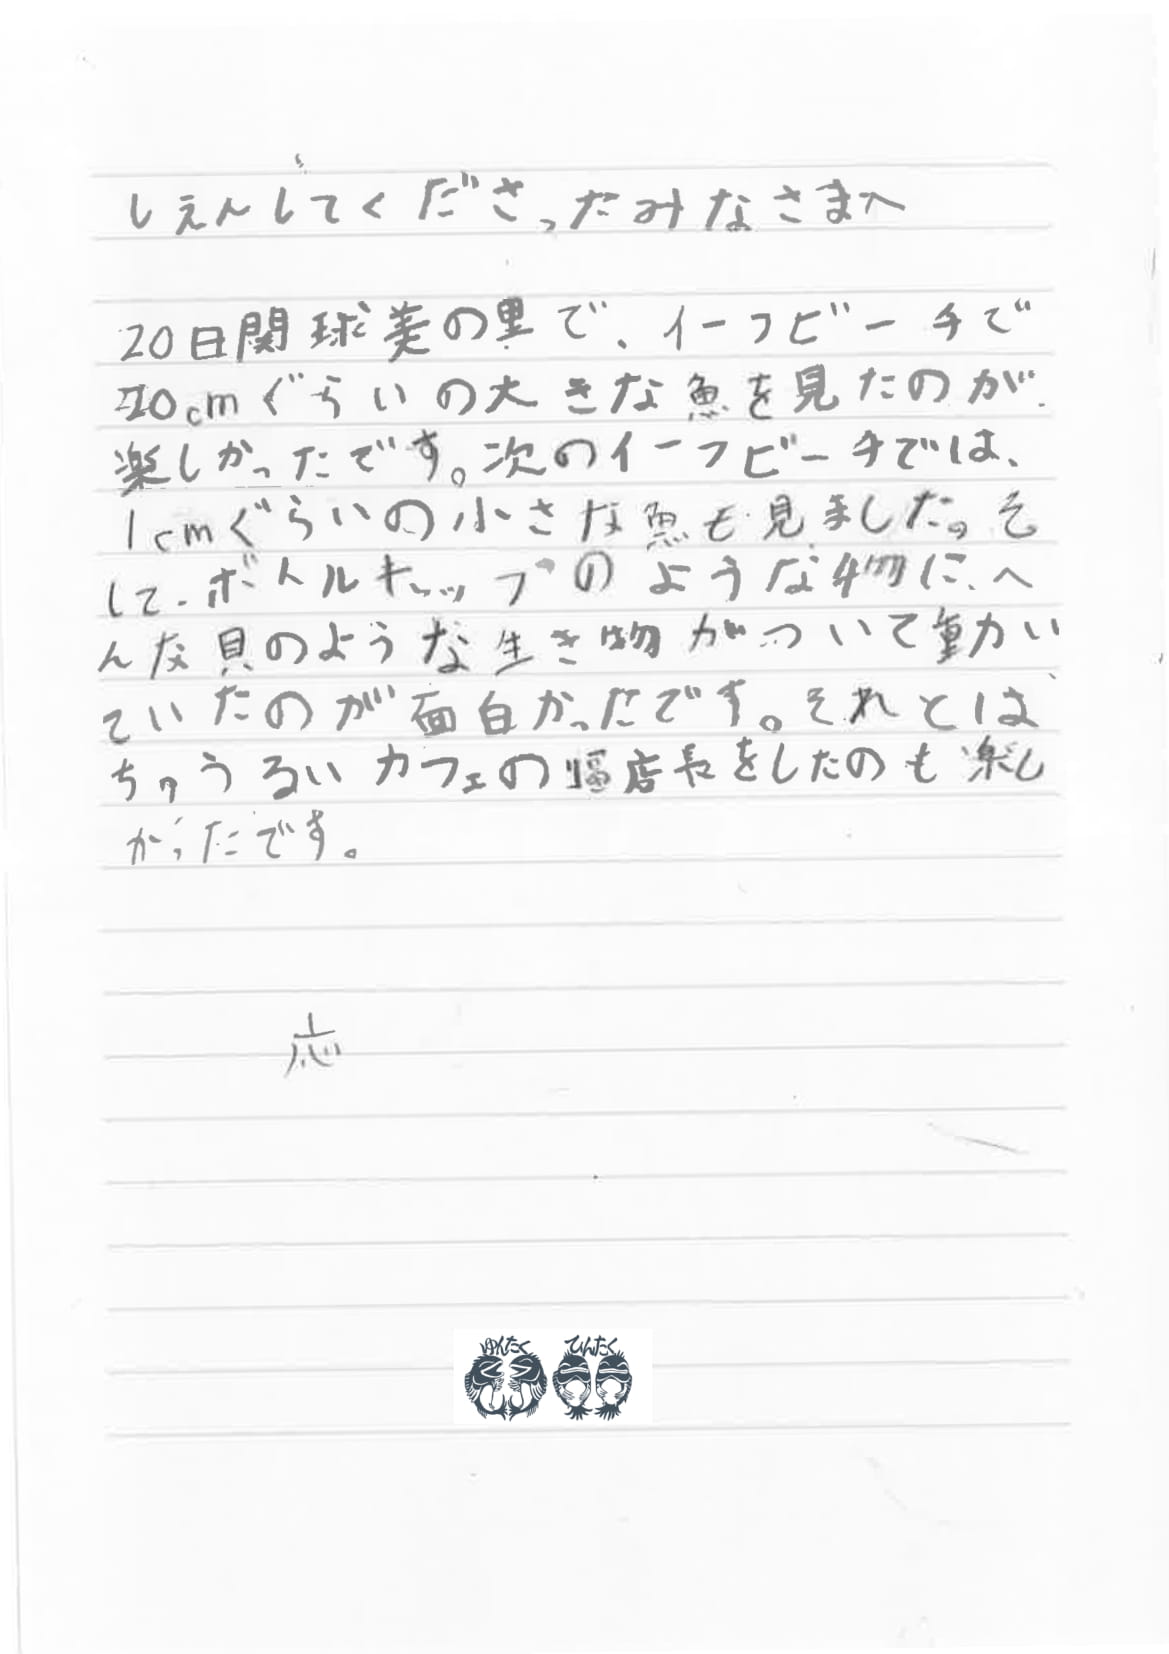 しえんしてくださったみなさまへ
20日関球美の里で、イーフビーチで
40cmぐらいの大きな魚を見たのが
楽しかったです。次のイーフビーチでは、
1cmぐらいの小さな魚も見ました。そ
して、ボトルキャップのような物に、へ
んな貝のような生き物がついて動かい
ていたのが面白かったです。それとは、
ちゅうるいカフェの店長をしたのも楽し
かったです。
応
ゆんたく ひんたく